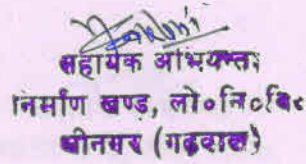 सहायक अभियन्ता
निर्माण खण्ड, लो०नि०वि०
श्रीनगर (गढ़वाल)